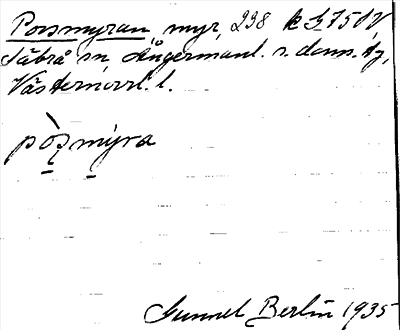 Porsmyran myr, 298 k I 75 SV
Säbrå sn Ångermanl. s. doms. tg,
Västernorrl. l.
pòʒmýra
Gunnel Berlin 1935